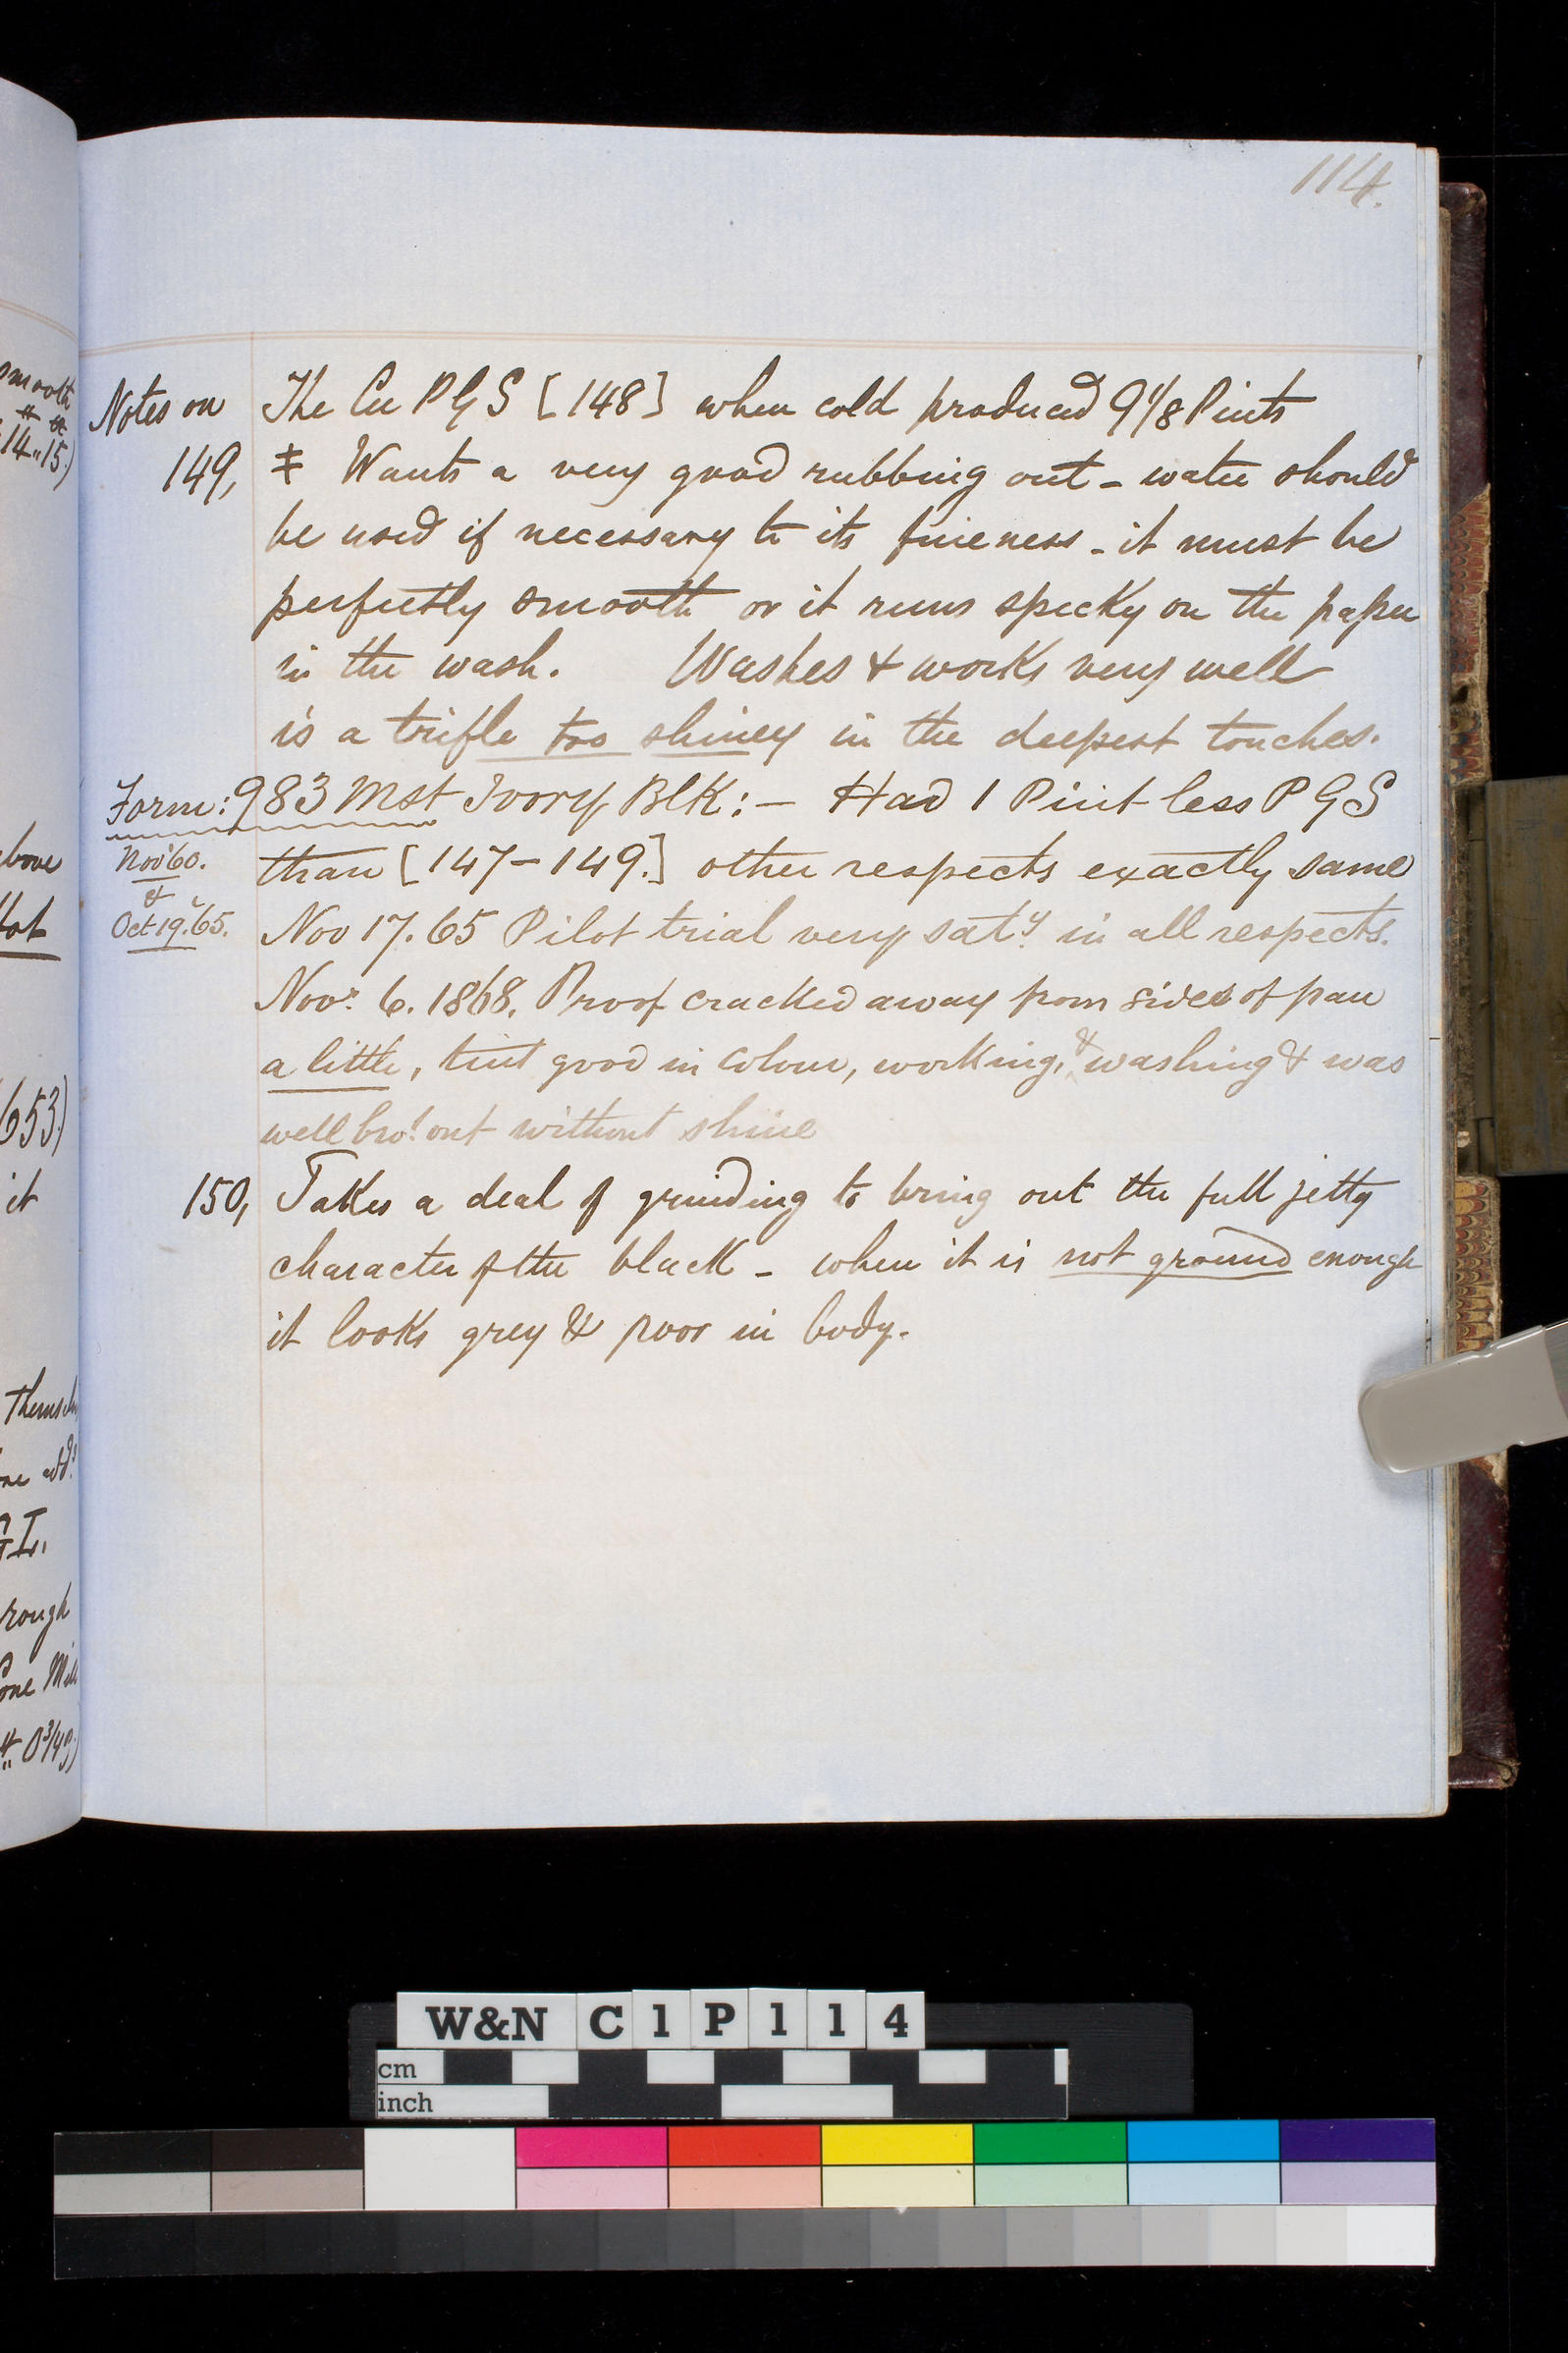 114.
Notes on The Cu P G S [148] when cold produced 9 1/8 Pints
149, ‡ Wants a very good rubbing out - water should
be used if necessary to its fineness - it must be
perfectly smooth or it runs specky on the paper
in the wash. Washes & works very well
is a trifle too shiney in the deepest touches.
Form: 983 Mst Ivory Blk: - Had 1 Pint less P G S
Nov '60. than [147-149.] other respects exactly same
&
Oct 19. 65. Nov 17. 65 Pilot trial very saty. in all respects.
Novr. 6. 1868. Proof cracked away from sides of pan
a little, tint good in colour, working, & washing & was
well brot. out without shine
150, Takes a deal of grinding to bring out the full jetty
character of the black - when it is not ground enough
it looks grey & poor in body.
smooth
14 " 15.)
above
Hot
653)
it
add.
rough
W&N C1P114
cm
inch